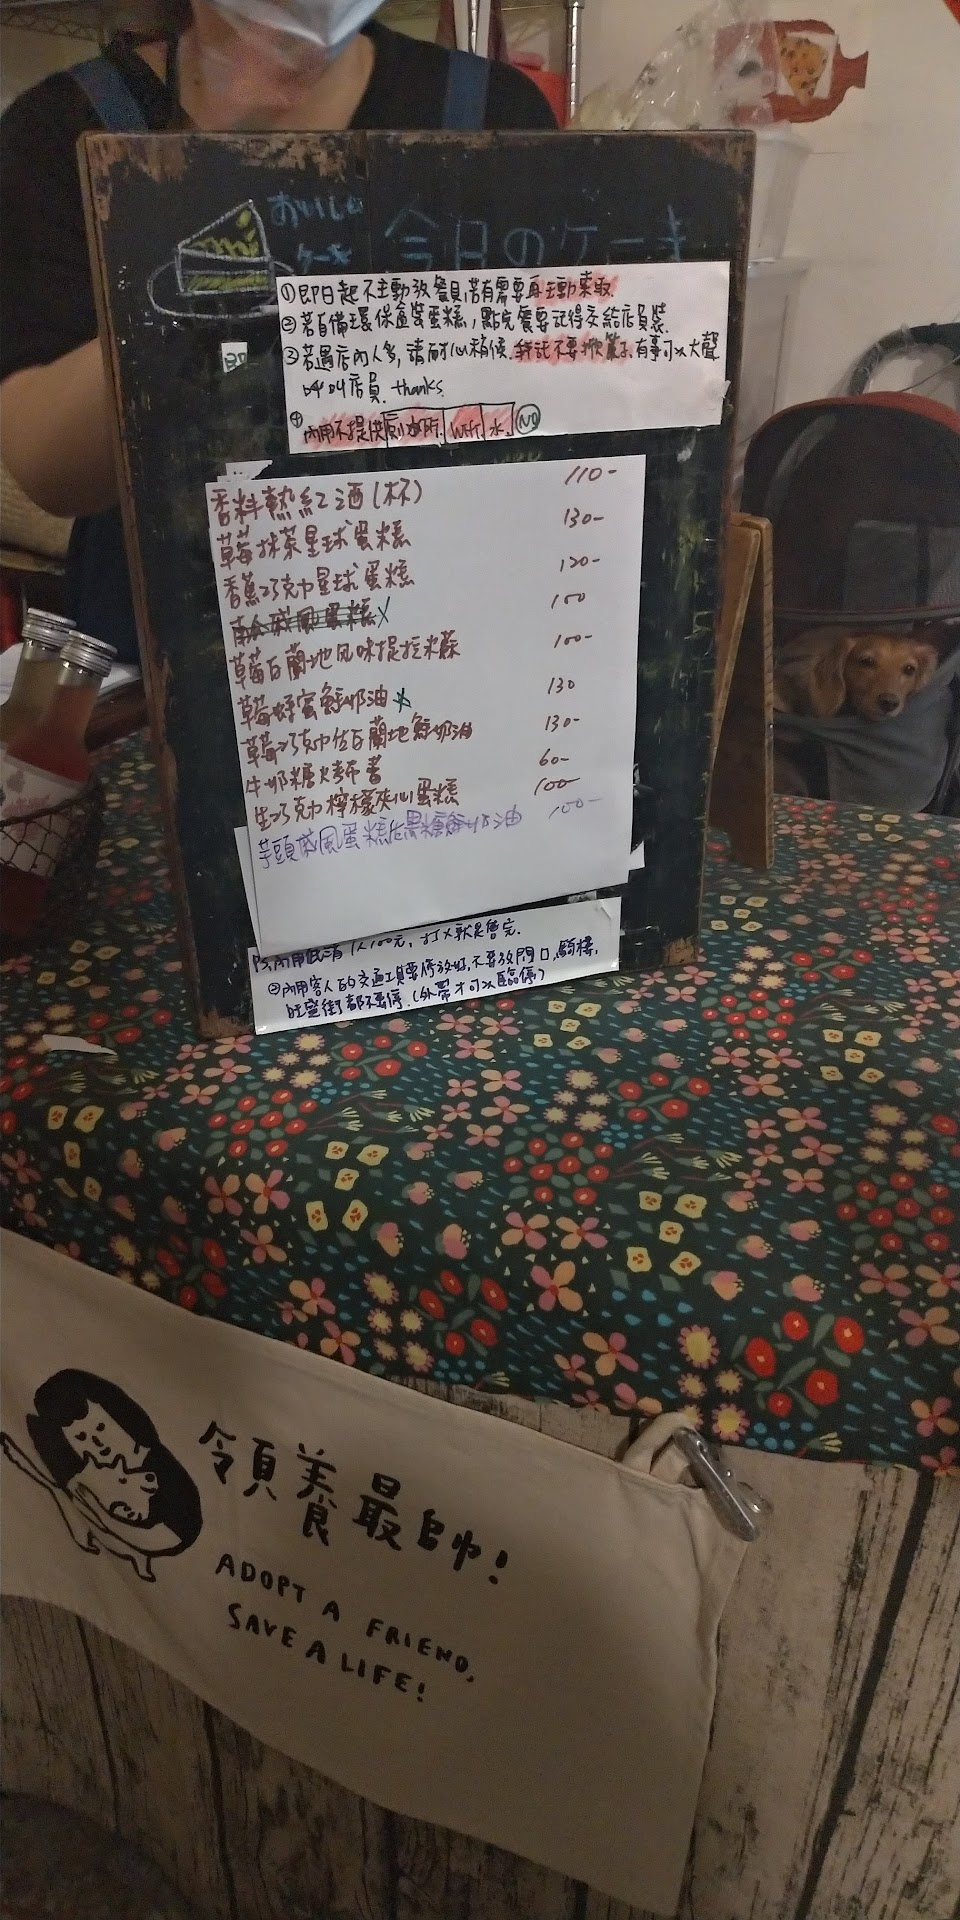 おいしい
ケーキ
今日のケーキ
①即日起不主動放餐具,若有需要再主動索取.
②若自備環保盒裝蛋糕,點完餐要記得交給店員裝.
③若遇店內人多,請耐心稍候,拜託不要掀簾子,有事可以大聲
呼叫店員. thanks.
④內用不提供廁所.WIFI.水. NO
香料熱紅酒(杯) 110-
草莓抹茶星球蛋糕 130-
香蕉巧克力星球蛋糕 120-
南瓜戚風蛋糕X 100
草莓白蘭地風味提拉米蘇 100-
草莓蜂蜜鮮奶油X 130
草莓巧克力佐白蘭地鮮奶油 130-
牛奶糖烤布蕾 60-
生巧克力檸檬夾心蛋糕 100-
芋頭戚風蛋糕佐黑糖鮮奶油 100-
PS.內用低消1人100元, 打X就是售完.
②內用客人的交通工具要停放好,不要放門口,騎樓,
旺盛街都不要停.(外帶才可以臨停)
領養最帥!
ADOPT A FRIEND,
SAVE A LIFE!